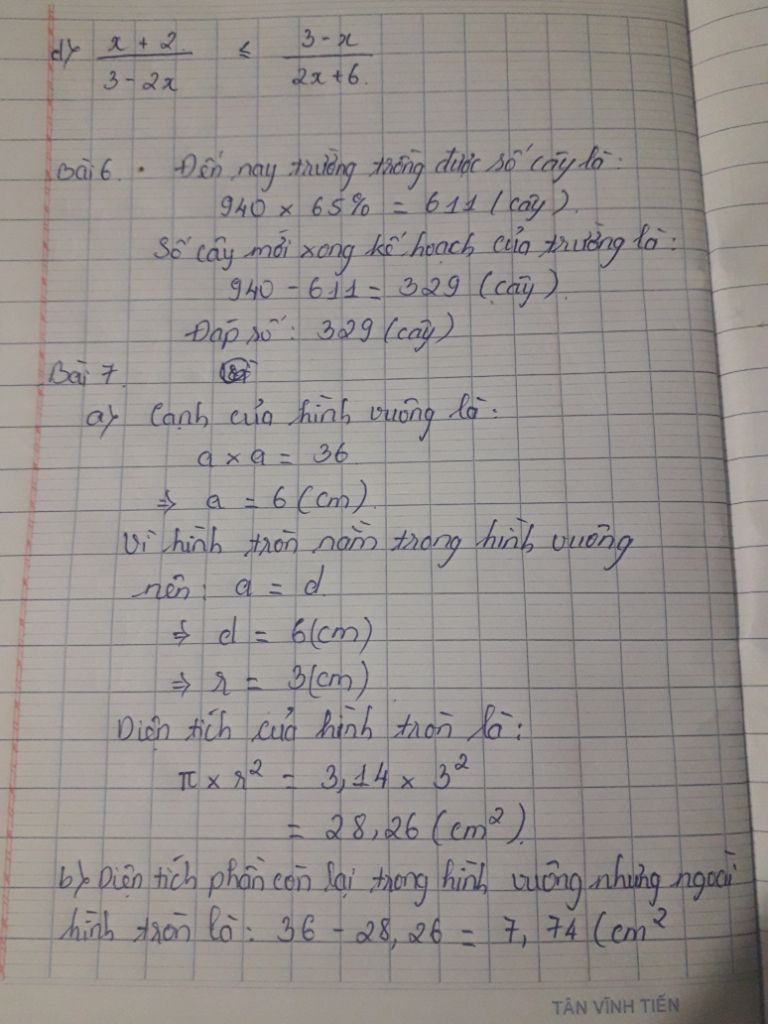 d) x + 2 / 3 - 2x ≤ 3 - x / 2x + 6
Bài 6. Đến nay trường trồng được số cây là:
940 × 65% = 611 (cây).
Số cây mới xong kế hoạch của trường là:
940 - 611 = 329 (cây)
Đáp số: 329 (cây)
Bài 7
a) Cạnh của hình vuông là:
a × a = 36
⇒ a = 6 (cm)
Vì hình tròn nằm trong hình vuông
nên: a = d
⇒ d = 6 (cm)
⇒ r = 3 (cm)
Diện tích của hình tròn là:
π × r² = 3,14 × 3²
= 28,26 (cm²)
b) Diện tích phần còn lại trong hình vuông nhưng ngoài
hình tròn là: 36 - 28,26 = 7,74 (cm²
TÂN VĨNH TIẾN